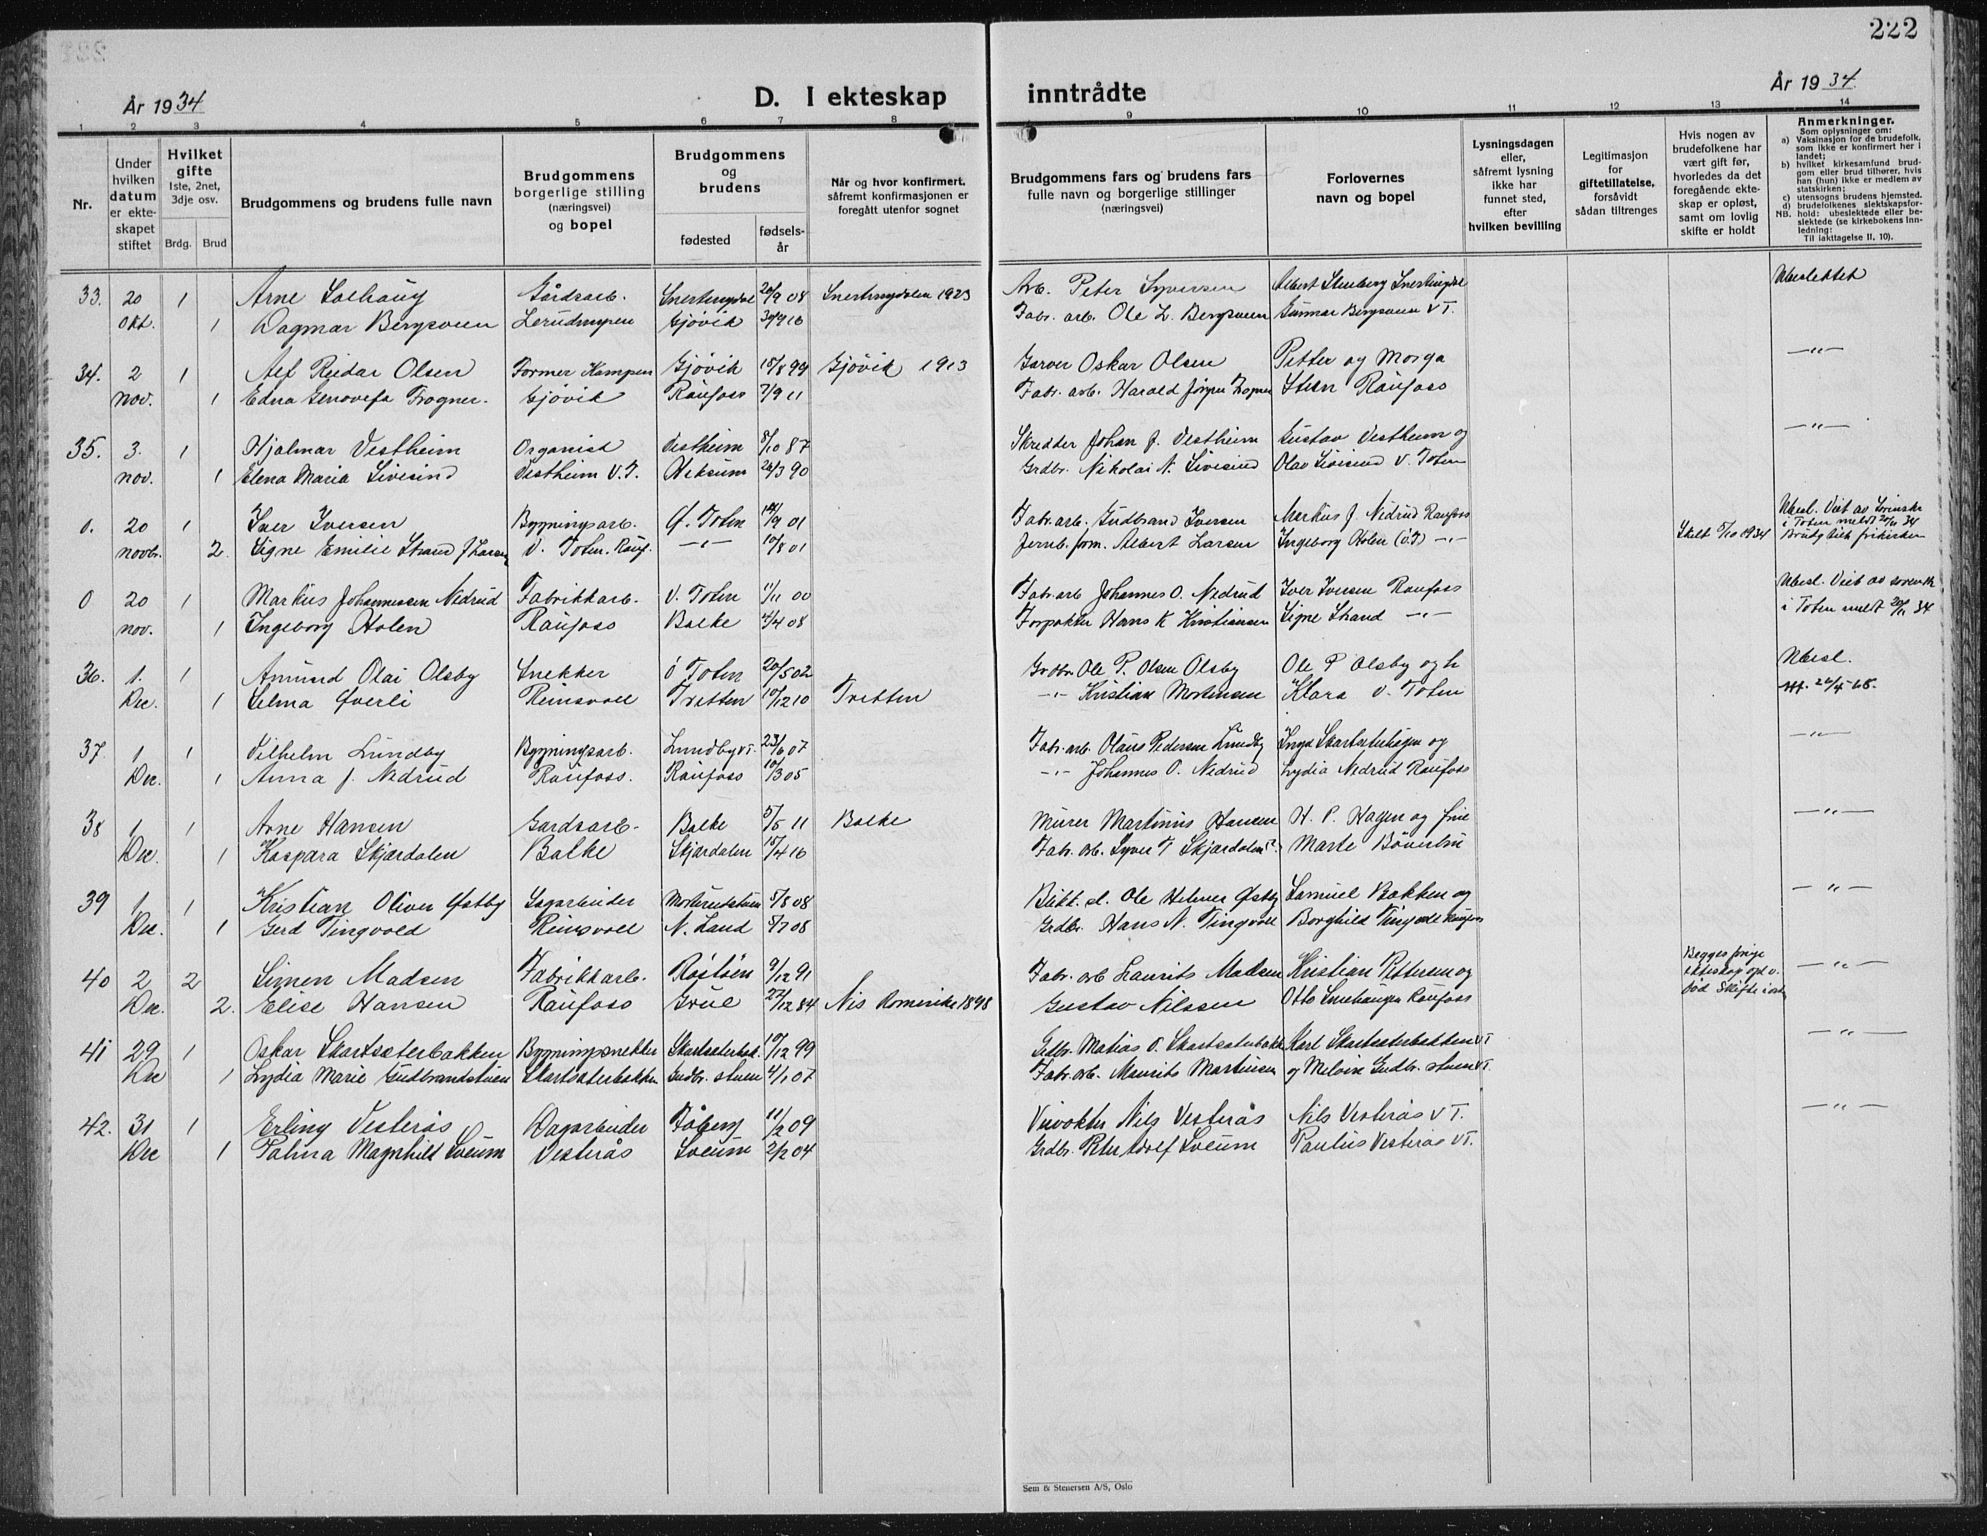 222
År 1934
D. I ekteskap inntrådte
År 1934
1 2 3 4 5 6 7 8 9 10 11 12 13 14
Nr.
Under hvilken datum er ekteskapet stiftet
Hvilket gifte
1ste, 2net, 3dje osv.
Brdg. Brud
Brudgommens og brudens fulle navn
Brudgommens borgerlige stilling (næringsvei) og bopel
Brudgommens og brudens
fødested
fødselsår
Når og hvor konfirmert, såfremt konfirmasjonen er foregått utenfor sognet
Brudgommens fars og brudens fars fulle navn og borgerlige stillinger (næringsvei)
Forlovernes navn og bopel
Lysningsdagen eller, såfremt lysning ikke har funnet sted, efter hvilken bevilling
Legitimasjon for giftetillatelse, forsåvidt sådan tiltrenges
Hvis nogen av brudefolkene har vært gift før, hvorledes da det foregående ekteskap er opløst, samt om lovlig skifte er holdt
Anmerkninger.
Som oplysninger om:
a) Vaksinasjon for de brudefolk, som ikke er konfirmert her i landet;
b) hvilket kirkesamfund brudgom eller brud tilhører, hvis han (hun) ikke er medlem av statskirken;
c) utensogns brudens hjemsted.
d) brudefolkenes slektskapsforhold: ubeslektede eller beslektede (se kirkebokens Innledning:
NB.
Til iakttagelse II, 10).
33. 20 1 Arne Solhaug Gårdsarb. Snertingdal 20/9 08 Snertingdalen 1923 Arb. Peter Syversen Albert Stenberg Snertingdal Ubeslektet
okt. 1 Dagmar Bergsveen Gjøvik 30/9 16 Fabr. arb. Ole L. Bergsveen Gunnar Bergsveen V T.
34. 2 1 Alf Reidar Olsen Former Kampen Gjøvik 15/8 99 Gjøvik 1913 Garver Oskar Olsen Petter og Morga —"—
nov. 1 Edna Genovefa Trogner. Gjøvik Raufoss 7/9 11 Fabr. arb. Harald Jørgen Trogner Steen Raufoss
35. 3. 1 Hjalmar Vestheim Organist Vestheim 8/10 87 Skredder Johan J. Vestheim Gustav Vestheim og —"—
nov. 1 Elena Maria Sivesind Vestheim V. T. 26/3 90 Grdbr. Nikolai N. Sivesind Olav Sivesind V. Toten
0. 20 1 Iver Iversen Bygningsarb. Ø. Toten 14/9 01 Fabr. arb. Gudbrand Iversen Markus J. Nedrud Raufoss
novbr. 2. Signe Emilie Strand f. Larsen V. Toten. Rauf. —"— 10/8 01 Jernb. form. Albert Larsen Ingeborg Holen (ø.T) —"— Skilt 5/10 1934 i Toten meldt 20/11 34
0 20 1 Markus Johannessen Nedrud Fabrikkarb. V. Toten 11/11 00 Fabr. arb Johannes O. Nedrud Iver Iversen Raufoss
nov. 1 Ingeborg Holen Raufoss Balke 12/4 08 Forpakter Hans K Kristiansen Signe Strand —"— i Toten meldt 20/11 34
36. 1. 1 Amund Olai Olsby Snekker Ø Toten 20/5 02 Grdbr. Ole P. Olsen Olsby Ole P Olsby og h Ubesl.
Dec. 1 Selma Øverli Reinsvoll Tretten 10/12 10 Tretten —"— Kristian Mortensen Klara V. Toten
37. 1 1 Vilhelm Lundby Bygningsarb. Lundby V T. 23/6 07 Fabr. arb. Olaus Pedersen Lundby Inga Skartsæterhagen og —"—
Dec. 1 Anna J. Nedrud Raufoss. Raufoss 10/3 05 —"— Johannes O. Nedrud Lydia Nedrud Raufoss
38 1 1 Arne Hansen Gardsarb. Balke 5/5 11 Balke Murer Martinius Hansen H. P. Hagen og frue —"—
Dec. 1 Kaspara Skjærdalen Balke Skjærdalen 15/4 16 Fabr. arb. Syver T Skjærdalen Marte Bøverbru
39 1 1 Kristian Oliver Østby Sagarbeider 5/8 08 Ole Helmer Østby Samuel Bakken og —"—
Dec. 1 Gerd Tingvold Reinsvoll N. Land 8/7 08 Grdbr. Hans N. Tingvoll Borghild Tingvoll
40 2 2 Simen Madsen Fabrikkarb. 9/12 91 Fabr. arb Laurits Madsen Kristian Pettersen og Begges forrige ekteskap opl. v. død Skifte —"—
Dec. 2. Elise Hansen Raufoss Grue 27/12 84 Nes Romerike 1898 Gustav Nilssen Otto Snehaugen Raufoss
41 29 1 Oskar Skartsæterbakken Bygningssnekker Skartsæterbak. 10/12 99 Grdbr. Matias O. Skartsæterbakk Karl Skartsæterbakken VT —"—
Dec 1 Lydia Marie Gudbrandstuen Skartsæterbakken Gudbr. stuen 4/1 07 Fabr. arb. Maurits Martinsen og Melvin Gudbr. stuen VT.
42. 31 1 Erling Vesterås Dagarbeider Fåberg 11/2 09 Nils Vesterås Nils Vesterås V T. —"—
Dec 1 Palma Magnhild Sveum Vesterås Sveum 2/2 04 Grdbr. Peter Adolf Sveum Paulus Vesterås VT.
Sem & Stenersen A/S, Oslo